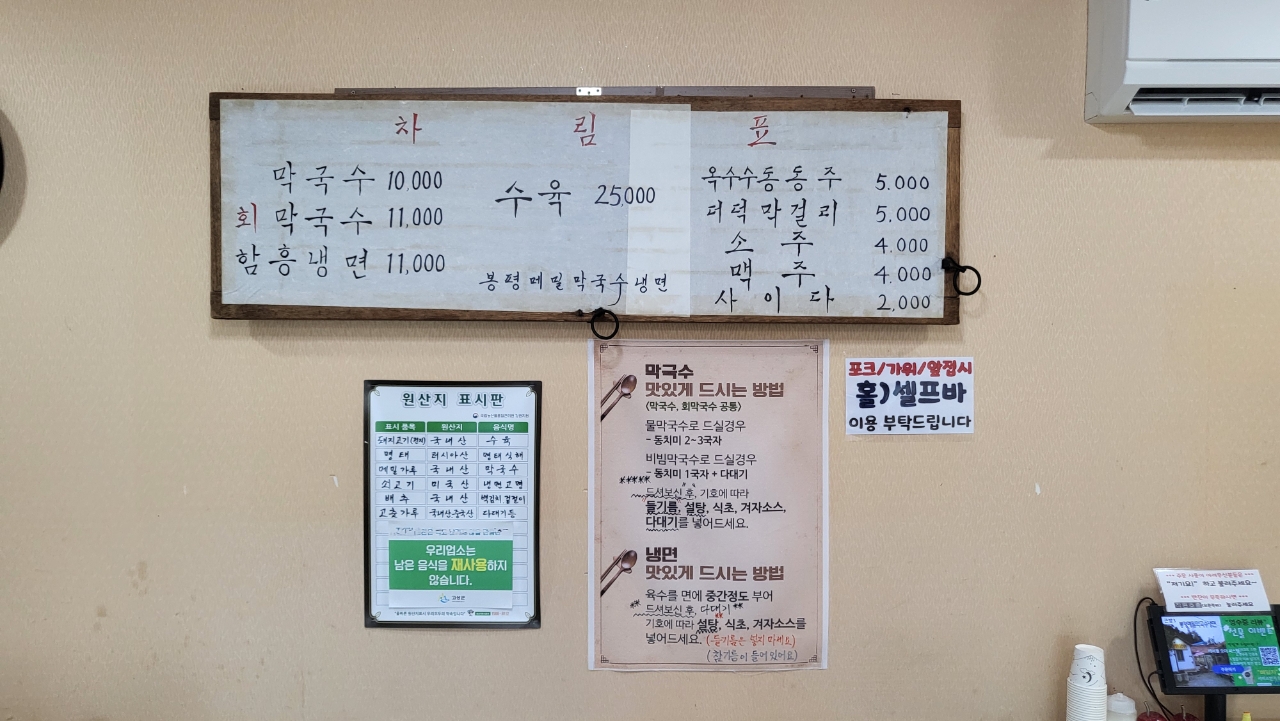 차 림 표
막국수 10,000
회 막국수 11,000
함흥냉면 11,000
수육 25,000
봉평메밀막국수냉면
옥수수동동주 5,000
더덕막걸리 5,000
소주 4,000
맥주 4,000
사이다 2,000
원산지 표시판
표시 품목 원산지 음식명
돼지고기 국내산 수육
명태 러시아산 명태식해
메밀가루 국내산 막국수
쇠고기 미국산 냉면고명
배추 국내산 백김치 겉절이
고춧가루 국내산 중국산 다대기등
우리업소는
남은 음식을 재사용하지
않습니다.
고성군
막국수
맛있게 드시는 방법
(막국수, 회막국수 공통)
물막국수로 드실경우
- 동치미 2~3국자
비빔막국수로 드실경우
- 동치미 1국자 + 다대기
드셔보신 후, 기호에 따라
들기름, 설탕, 식초, 겨자소스,
다대기를 넣어드세요.
냉면
맛있게 드시는 방법
육수를 면에 중간정도 부어
드셔보신 후, 다대기
기호에 따라 설탕, 식초, 겨자소스를
넣어드세요. (들기름은 넣지 마세요)
(참기름이 들어 있어요)
포크/가위/앞접시
홀) 셀프바
이용 부탁드립니다
"저기요!" 하고 불러주세요~